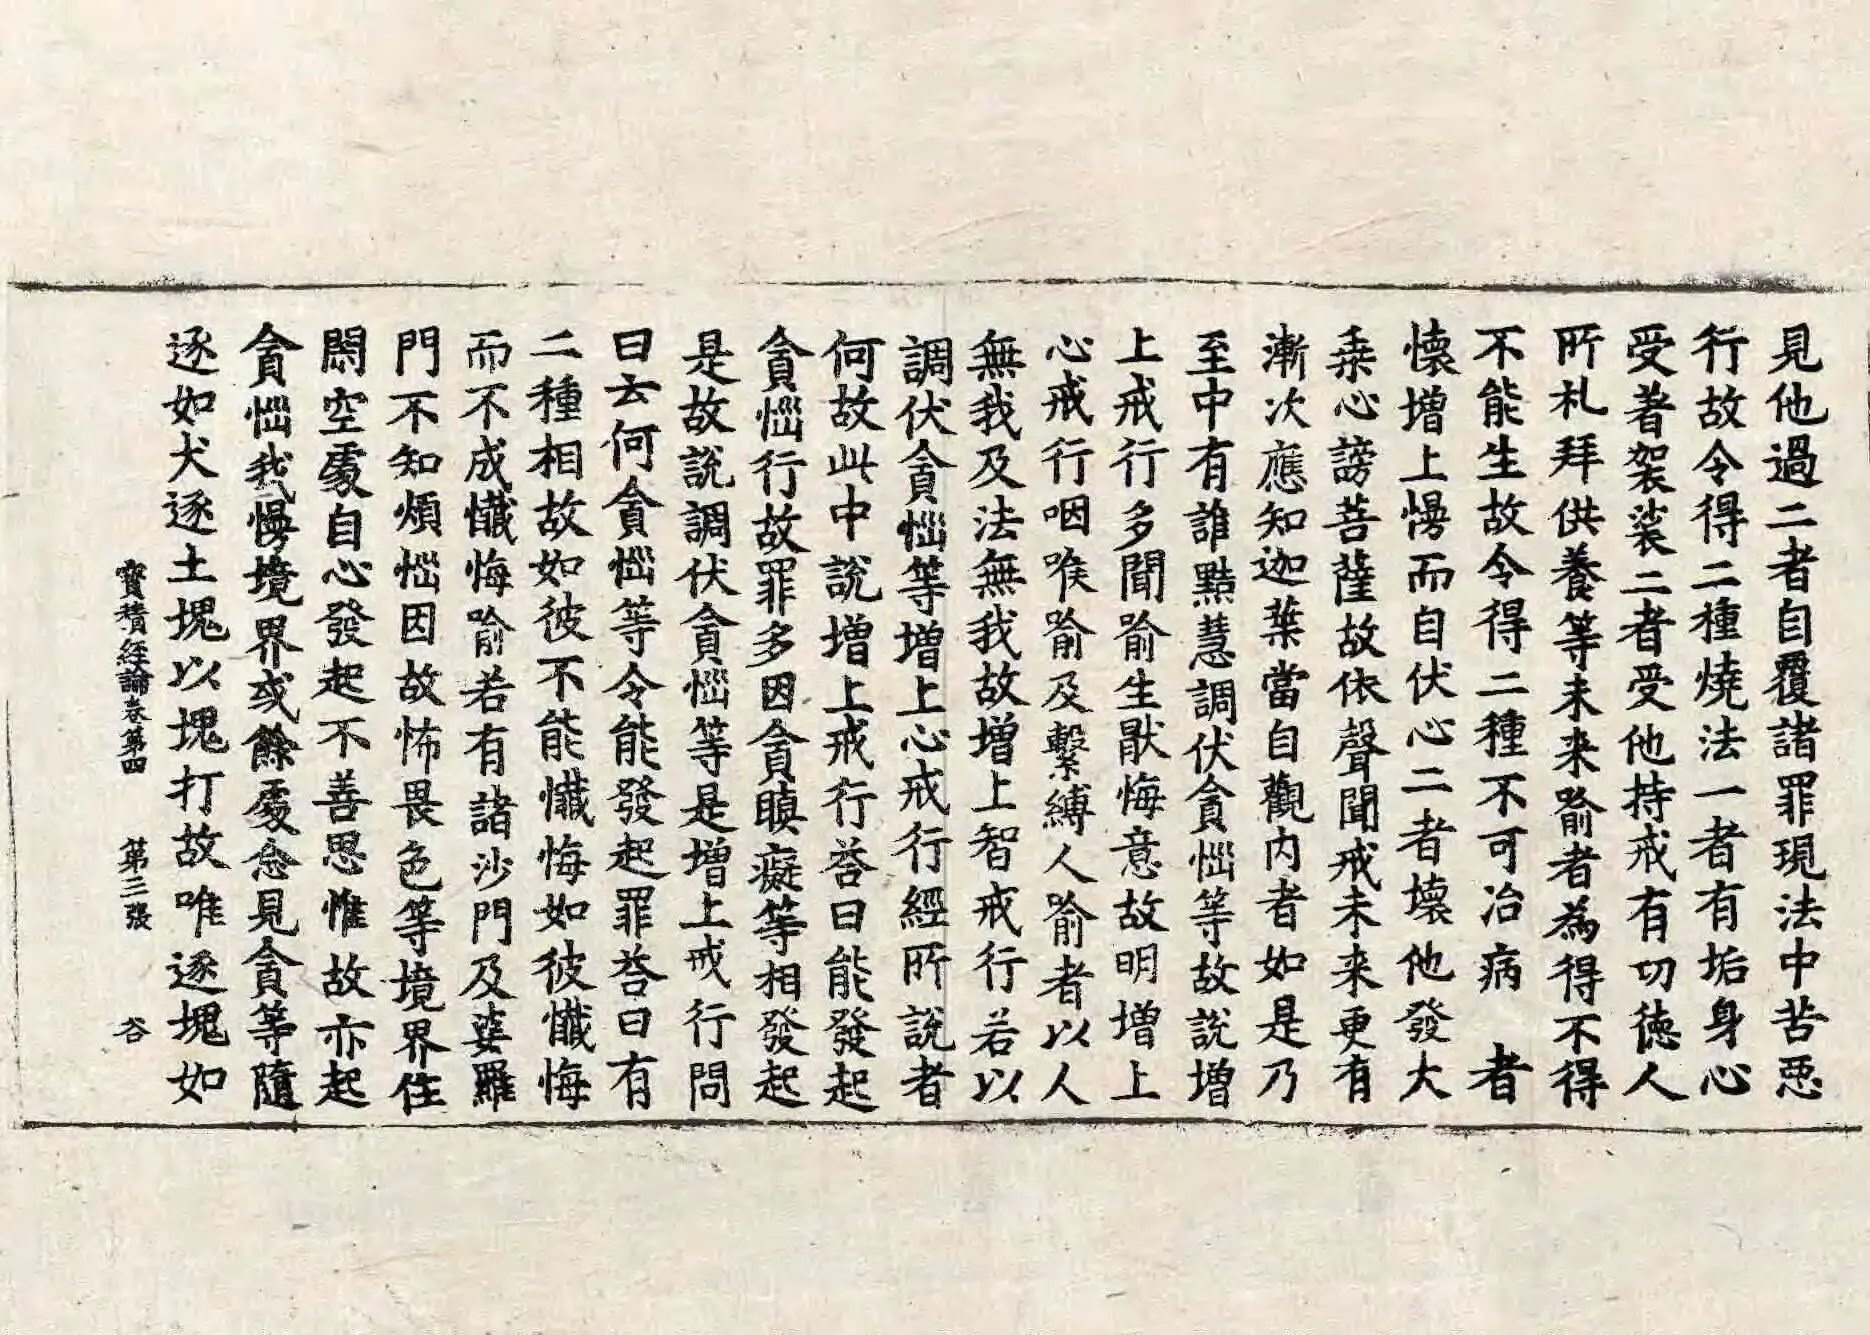 見他過二者自覆諸罪現法中苦惡
行故令得二種燒法一者有垢身心
受著袈裟二者受他持戒有切徳人
所礼拜供養等未来喻者為得不得
不能生故令得二種不可治病　者
懷增上慢而自伏心二者壞他發大
乗心謗菩薩故依聲聞戒未来更有
漸次應知迦葉當自觀内者如是乃
至中有誰黠慧調伏貪惱等故說增
上戒行多聞喻生猒悔意故明增上
心戒行咽喉喻及繫縛人喻者以人
無我及法無我故增上智戒行若以
調伏貪惱等增上心戒行經所說者
何故此中說增上戒行荅曰能發起
貪惱行故罪多因貪瞋癡等相發起
是故說調伏貪惱等是增上戒行問
曰云何貪惱等令能發起罪荅曰有
二種相故如彼不能懺悔如彼懺悔
而不成懺悔喻若有諸沙門及婆羅
門不知煩惱因故怖畏色等境界住
閑空處自心發起不善思惟故亦起
貪惱我慢境界或餘處念見貪等隨
逐如犬逐土塊以塊打故唯逐塊如
寶積經論卷第四　第三張　谷